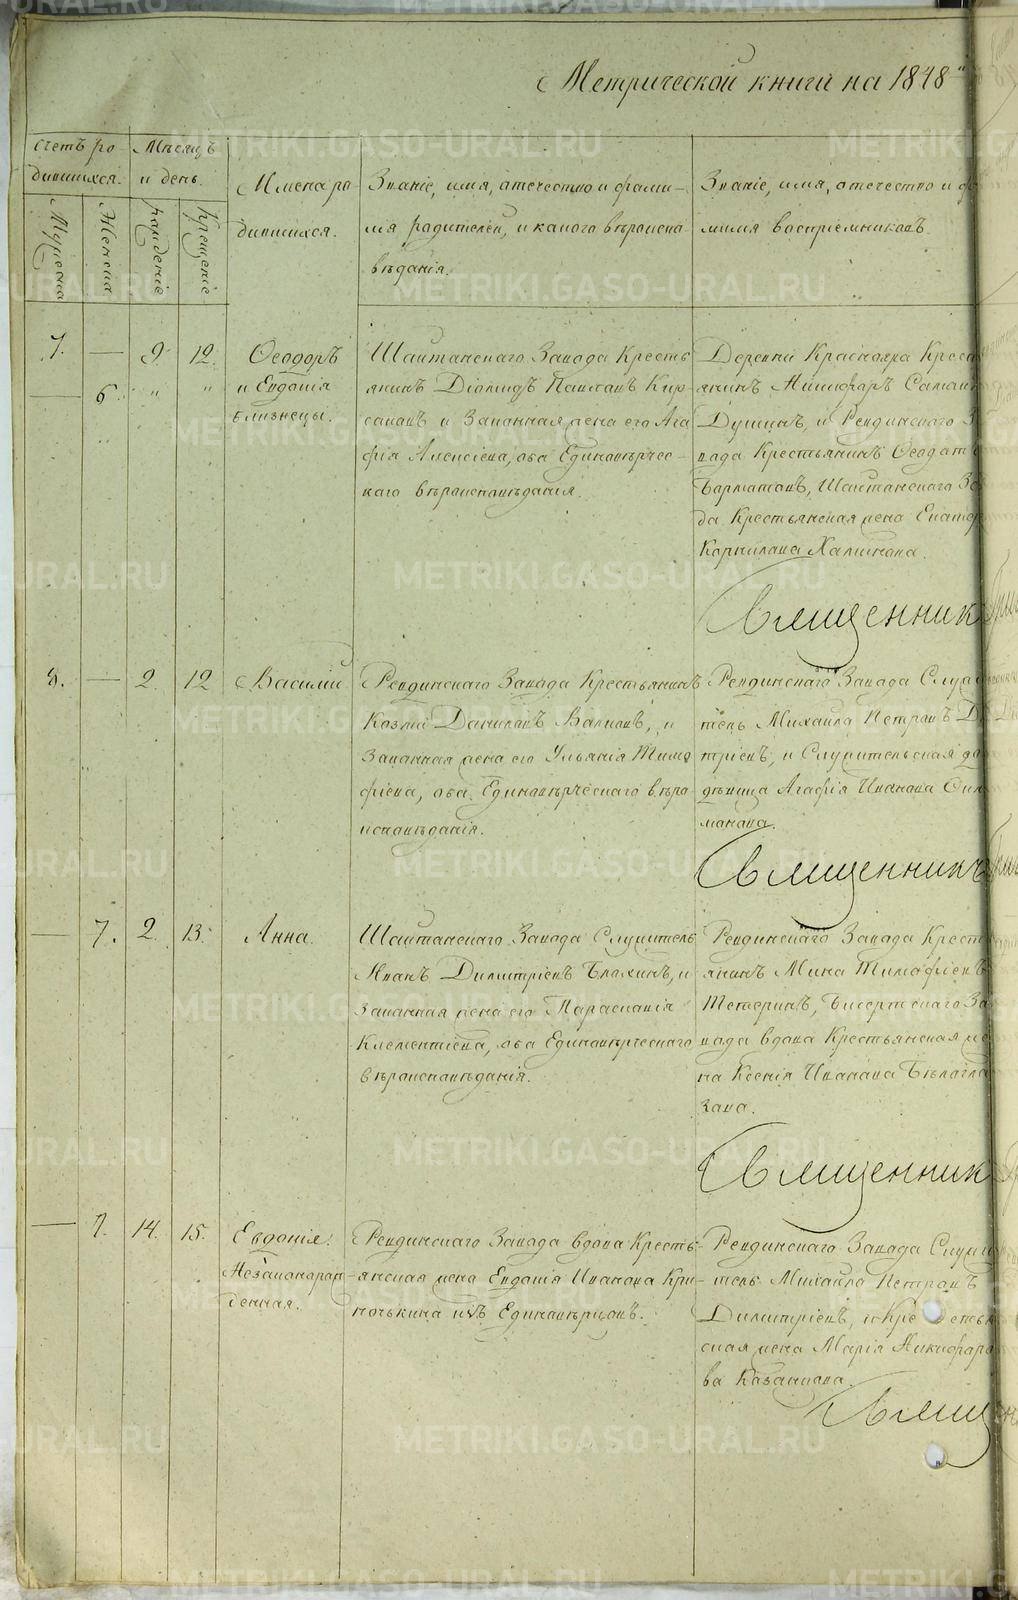 Метрической книги на 1848
Счетъ ро-
дившихся.
Мѣсяцъ
и день.
Мужеска
Женска
рожденіе
Крещеніе
Имена ро
дившихся.
Званіе, имя, отечество и фами-
лія родителей, и какого вѣроиспо
вѣданія.
Званіе, имя, отечество и фа
милія воспріемниковъ.
7.
—
9
12
—
6
"
"
Ѳеодоръ
и Евдокія
близнецы.
Шайтанскаго Завода Кресть
янинъ Діомидъ Павловъ Кир
сановъ и Законная жена его Ага
фія Алексіева, оба Единовѣрчес-
каго вѣроисповѣданія.
Деревни Краснояра Кресть
янинъ Никифоръ
Душинъ, и Ревдинскаго З
вода Крестьянинъ Ѳеодотъ
Шайтанскаго За
да Крестьянская жена Екатер
Корнилова Халимова.
Священник
8.
—
2.
12
Василій
Ревдинскаго Завода Крестьянинъ
Козма Даниловъ Валковъ, и
Законная жена его Ульянія Тимо
фіева, оба Единовѣрческаго вѣро
исповѣданія.
Ревдинскаго Завода Служи
тель Михайло Петровъ Ди
тріевъ, и Служительская до
дѣвица Агафія Иванова
манова.
Священникъ
—
7.
2.
13.
Анна.
Шайтанскаго Завода Служитель
Иванъ Димитріевъ Блохинъ, и
Законная жена его Параскавія
Клементіева, оба Единовѣрческаго
вѣроисповѣданія.
Ревдинскаго Завода Кресть
янинъ Мина Тимофіевъ
Тетеринъ, Бисертскаго За
вода вдова Крестьянская же
на Ксенія Иванова Бѣлогла
зова.
Священник
—
7.
14.
15.
Евдокія.
Незаконорож
денная.
Ревдинскаго Завода вдова Кресть
янская жена Евдокія Иванова Кри
ночькина изъ Единовѣрцовъ.
Ревдинскаго Завода Служи
тель Михайло Петровъ
Димитріевъ, и Кре стьян
ская жена Марія Никифоро
ва Казанцова.
Свящ
METRIKI.GASO-URAL.RU